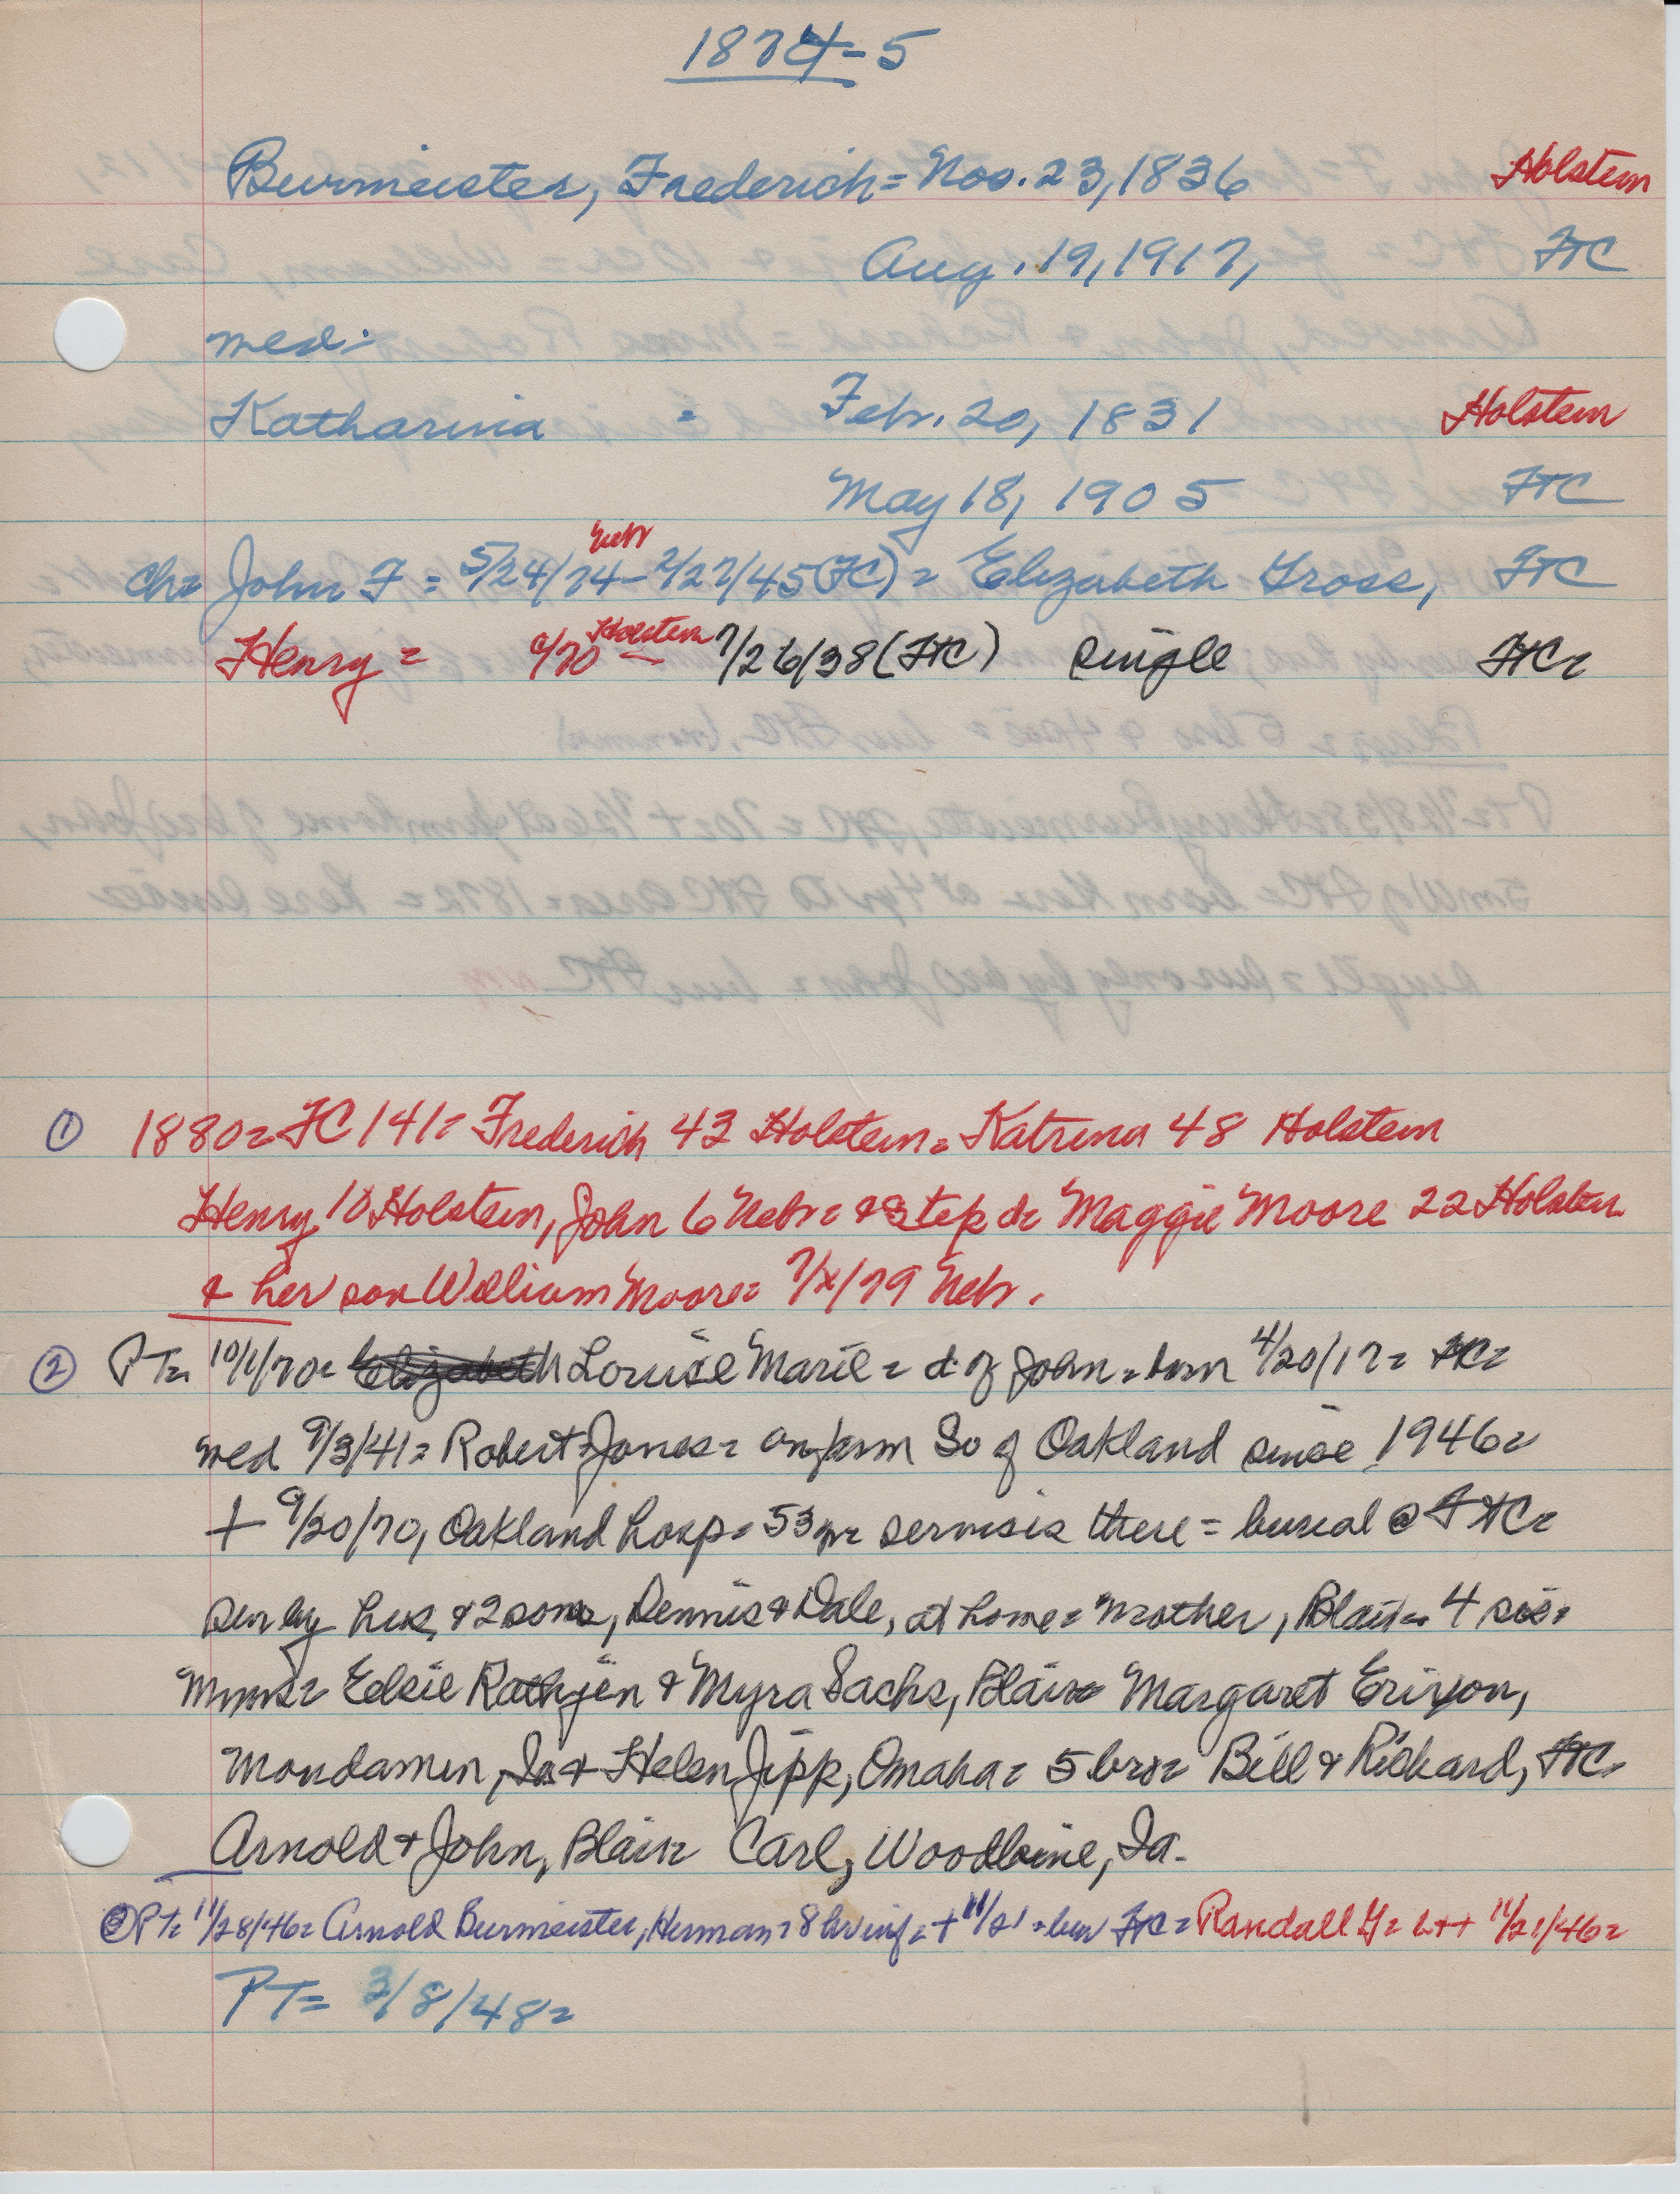 1874-5
Burmeister, Frederich = Nov. 23, 1836 Holstein
Aug. 19, 1917, FTC
wed:
Katharina = Feb. 20, 1831 Holstein
May 18, 1905 FTC
Nebr
ch= John F = 5/24/74 - 2/27/45 (FC) = Elizabeth Gross, FTC
Holstein
Henry = /70 - 7/26/38 (FTC) single FTC=
① 1880= FC 141= Frederich 43 Holstein= Katrina 48 Holstein
Henry 10 Holstein, John 6 Nebr= & step d= Maggie Moore 22 Holstein
& her son William Moore= 7/x/79 Nebr.
② PT= 10/1/70= Louise Marie = d. of John = born 4/20/17= FTC=
wed 9/3/41= Robert Jones= on farm So of Oakland since 1946=
+ 9/20/70, Oakland hosp= 53 y= services there = burial @ FTC=
sur by hus, & 2 sons, Dennis & Dale, at home= mother, Blair= 4 sis=
Mmes= Elsie Rathjen & Myra Sachs, Blair= Margaret Erixon,
Mondamin, Ia & Helen Jipp, Omaha= 5 bros= Bill & Richard, FTC=
Arnold & John, Blair= Carl, Woodbine, Ia.
PT= 11/28/46= Arnold Burmeister, Herman= 8 hr inf= + 11/21 = bur FTC = Randall G= b++ 11/21/46=
PT= 3/8/48=